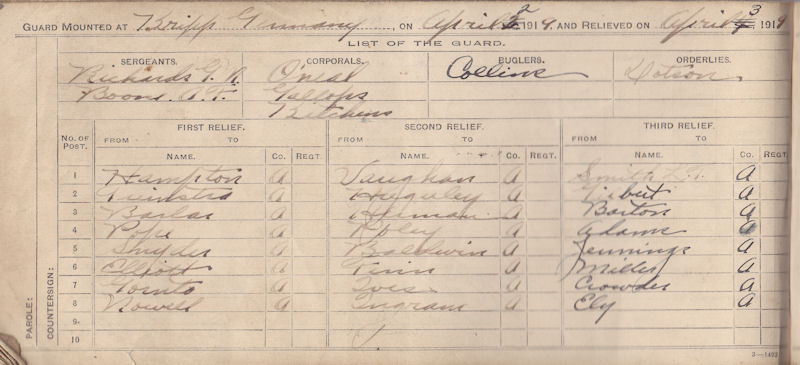 GUARD MOUNTED AT Kripp Germany, ON April 2 1919, AND RELIEVED ON April 3 191
LIST OF THE GUARD.
SERGEANTS. CORPORALS. BUGLERS. ORDERLIES.
Richards O'neal Collins Dotson
Boone A.F. Gallops
Kitchens
No. OF POST. FIRST RELIEF. SECOND RELIEF. THIRD RELIEF.
FROM TO FROM TO FROM TO
NAME. Co. REGT. NAME. Co. REGT. NAME. Co. REGT.
1 Hampton A Vaughan A Smith L.T. A
2 A Huguley A Gilbert A
3 A A Barton A
4 Pope A A Adams A
5 Snyder A Baldwin A Jennings A
6 Elliott A A Miller A
7 A Ives A Crowder A
8 Nowell A Ingram A Ely A
9
10
PAROLE:
COUNTERSIGN:
3—1493